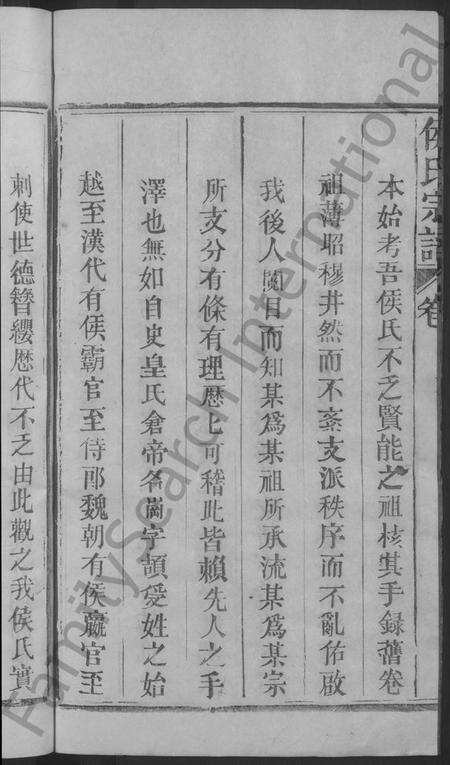 侯氏宗譜 卷
本始考吾侯氏不乏賢能之祖核其手錄舊卷
祖薄昭穆井然而不紊支派秩序而不亂佑啟
我後人閱目而知某為某祖所承流某為某宗
所支分有條有理歷匕可稽此皆賴先人之手
澤也無如自史皇氏倉帝名崗字頡爰姓之始
越至漢代有侯霸官至侍郎魏朝有侯嬴官至
刺使世德簪纓歷代不乏由此觀之我侯氏實
FamilySearch International